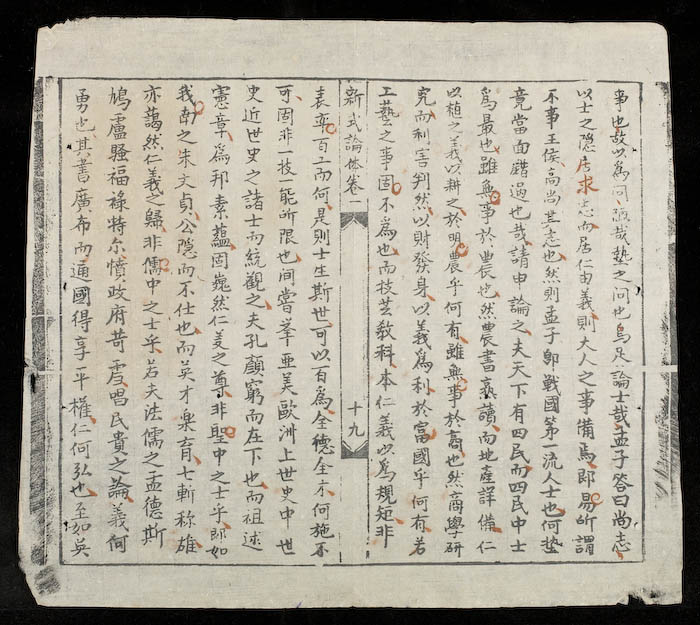 事也故以爲問陋哉墊之問也烏足論士哉孟子答曰尚志
以士之隱居求志而居仁由義則大人之事備焉卽易所謂
不事王侯高尚其志也然則孟子卽戰國第一流人士也何墊
竟當面錯過也哉請申論之夫天下有四民而四民中士
爲最也雖無事於農也然農書熟讀而地產詳備仁
以植之義以耕之於明農乎何有雖無事於商也然商學研
究而利害判然以財發身以義爲利於富國乎何有若
工藝之事固不爲也而技芸敎科本仁義以爲規矩非
新式論体卷一
十九
表率百工而何是則士生斯世可以百爲全德全才何施不
可固非一技一能所限也间嘗峯亜美歐洲上世史中世
史近世史之諸士而統觀之夫孔顏窮而在下也而祖述
憲章爲邦素蘊固巍然仁义之尊非聖中之士乎卽如
我南之朱文貞公隐而不仕也而英才樂育七斬称雄
亦藹然仁義之歸非儒中之士乎若夫法儒之孟德斯
鳩盧騷福祿特尔憤政府苛虐唱民貴之論義何
勇也其書廣布而通國得享平權仁何弘也至如英